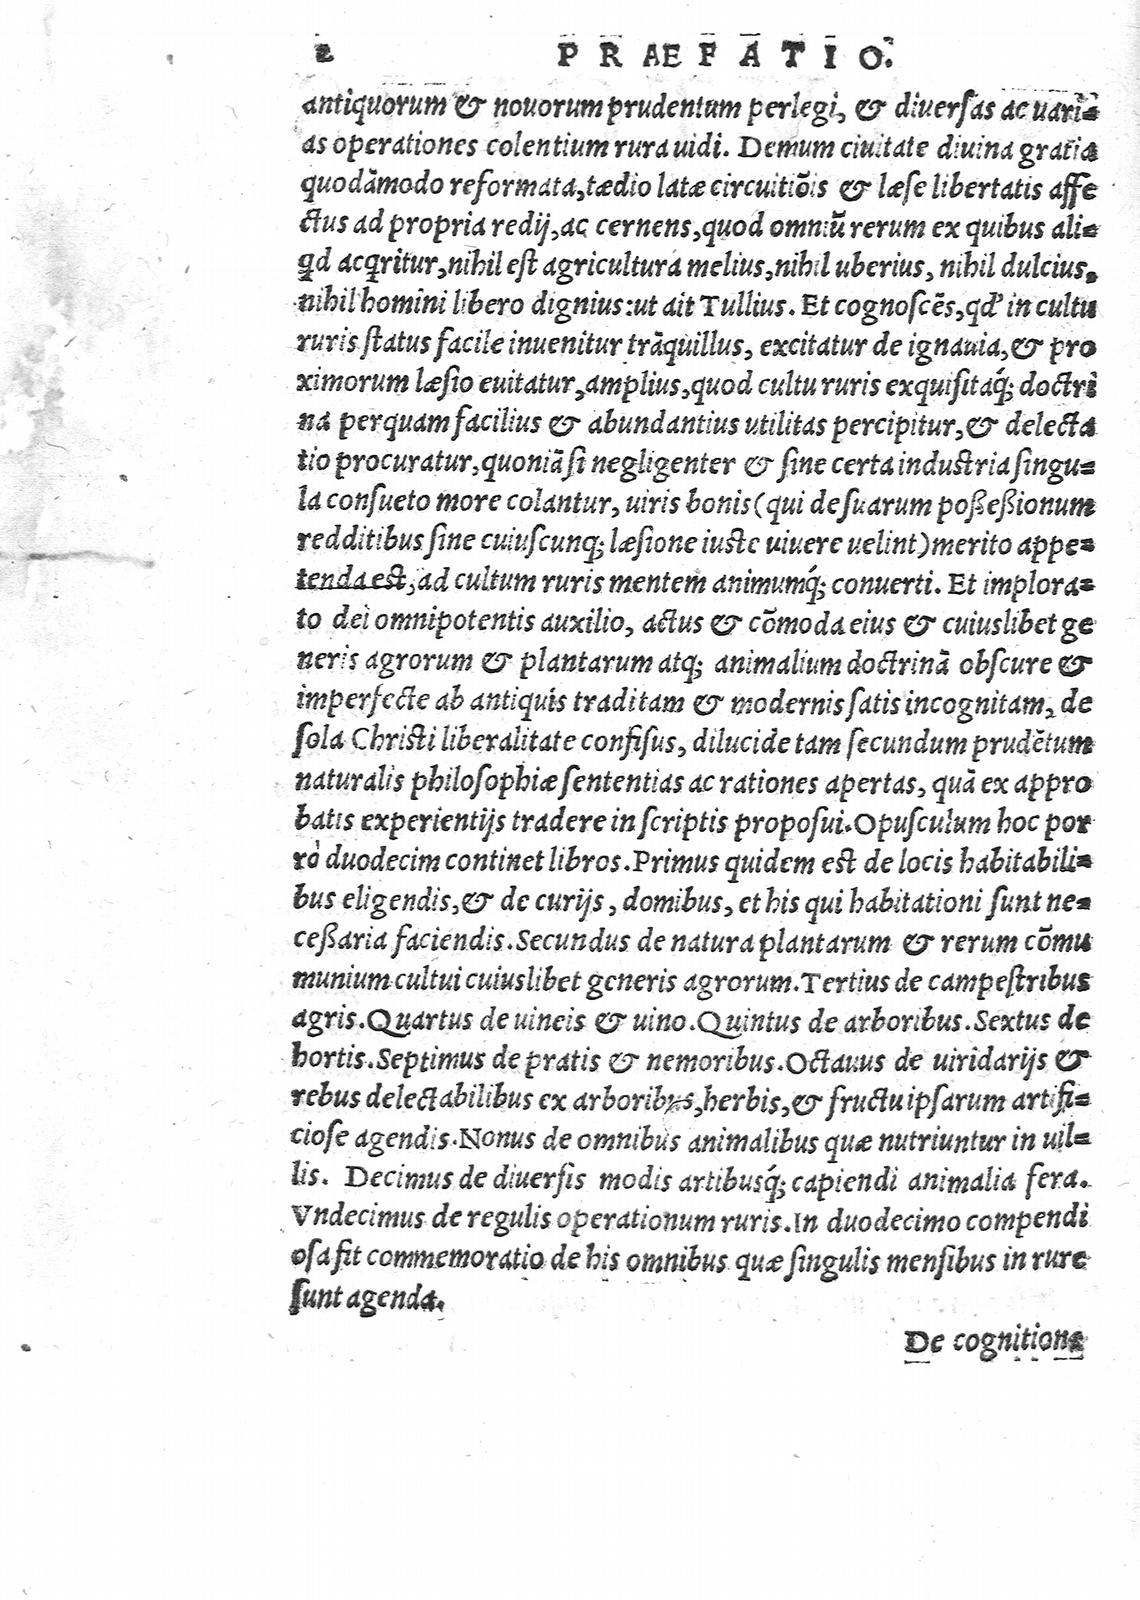 2 PRAEFATIO.
antiquorum & novorum prudentum perlegi, & diuerſas ac uari=
as operationes colentium rura uidi. Demum ciuitate diuina gratia
quodãmodo reformata, tædio latæ circuitiõis & læſe libertatis affe
ctus ad propria redij, ac cernens, quod omniũ rerum ex quibus ali=
qd acqritur, nihil eſt agricultura melius, nihil uberius, nihil dulcius,
nihil homini libero dignius: ut ait Tullius. Et cognoſcẽs, qd' in cultu
ruris ſtatus facile inuenitur trãquillus, excitatur de ignauia, & pro
ximorum læſio euitatur, amplius, quod cultu ruris exquiſitaq́; doctri
na perquam facilius & abundantius utilitas percipitur, & delecta
tio procuratur, quoniã ſi negligenter & ſine certa induſtria ſingu=
la conſueto more colantur, uiris bonis (qui de ſuarum poßeßionum
redditibus ſine cuiuſcunq; læſione iuste uiuere uelint) merito appe=
tenda est, ad cultum ruris mentem animumq́; conuerti. Et implora=
to dei omnipotentis auxilio, actus & cõmoda eius & cuiuslibet ge
neris agrorum & plantarum atq; animalium doctrinã obſcure &
imperfecte ab antiquis traditam & modernis ſatis incognitam, de
ſola Chriſti liberalitate confiſus, dilucide tam ſecundum prudẽtum
naturalis philoſophiæ ſententias ac rationes apertas, quã ex appro
batis experientijs tradere in ſcriptis propoſui. Opuſculum hoc por
rò duodecim continet libros. Primus quidem est de locis habitabili=
bus eligendis, & de curijs, domibus, et his qui habitationi ſunt ne=
ceßaria faciendis. Secundus de natura plantarum & rerum cõmu
munium cultui cuiuslibet generis agrorum. Tertius de campeſtribus
agris. Quartus de uineis & uino. Quintus de arboribus. Sextus de
hortis. Septimus de pratis & nemoribus. Octauus de uiridarijs &
rebus delectabilibus ex arboribus, herbis, & fructu ipſarum artifi=
cioſe agendis. Nonus de omnibus animalibus quæ nutriuntur in uil=
lis. Decimus de diuerſis modis artibusq́; capiendi animalia fera.
Vndecimus de regulis operationum ruris. In duodecimo compendi
oſa fit commemoratio de his omnibus quæ ſingulis menſibus in rure
ſunt agenda.
De cognitione